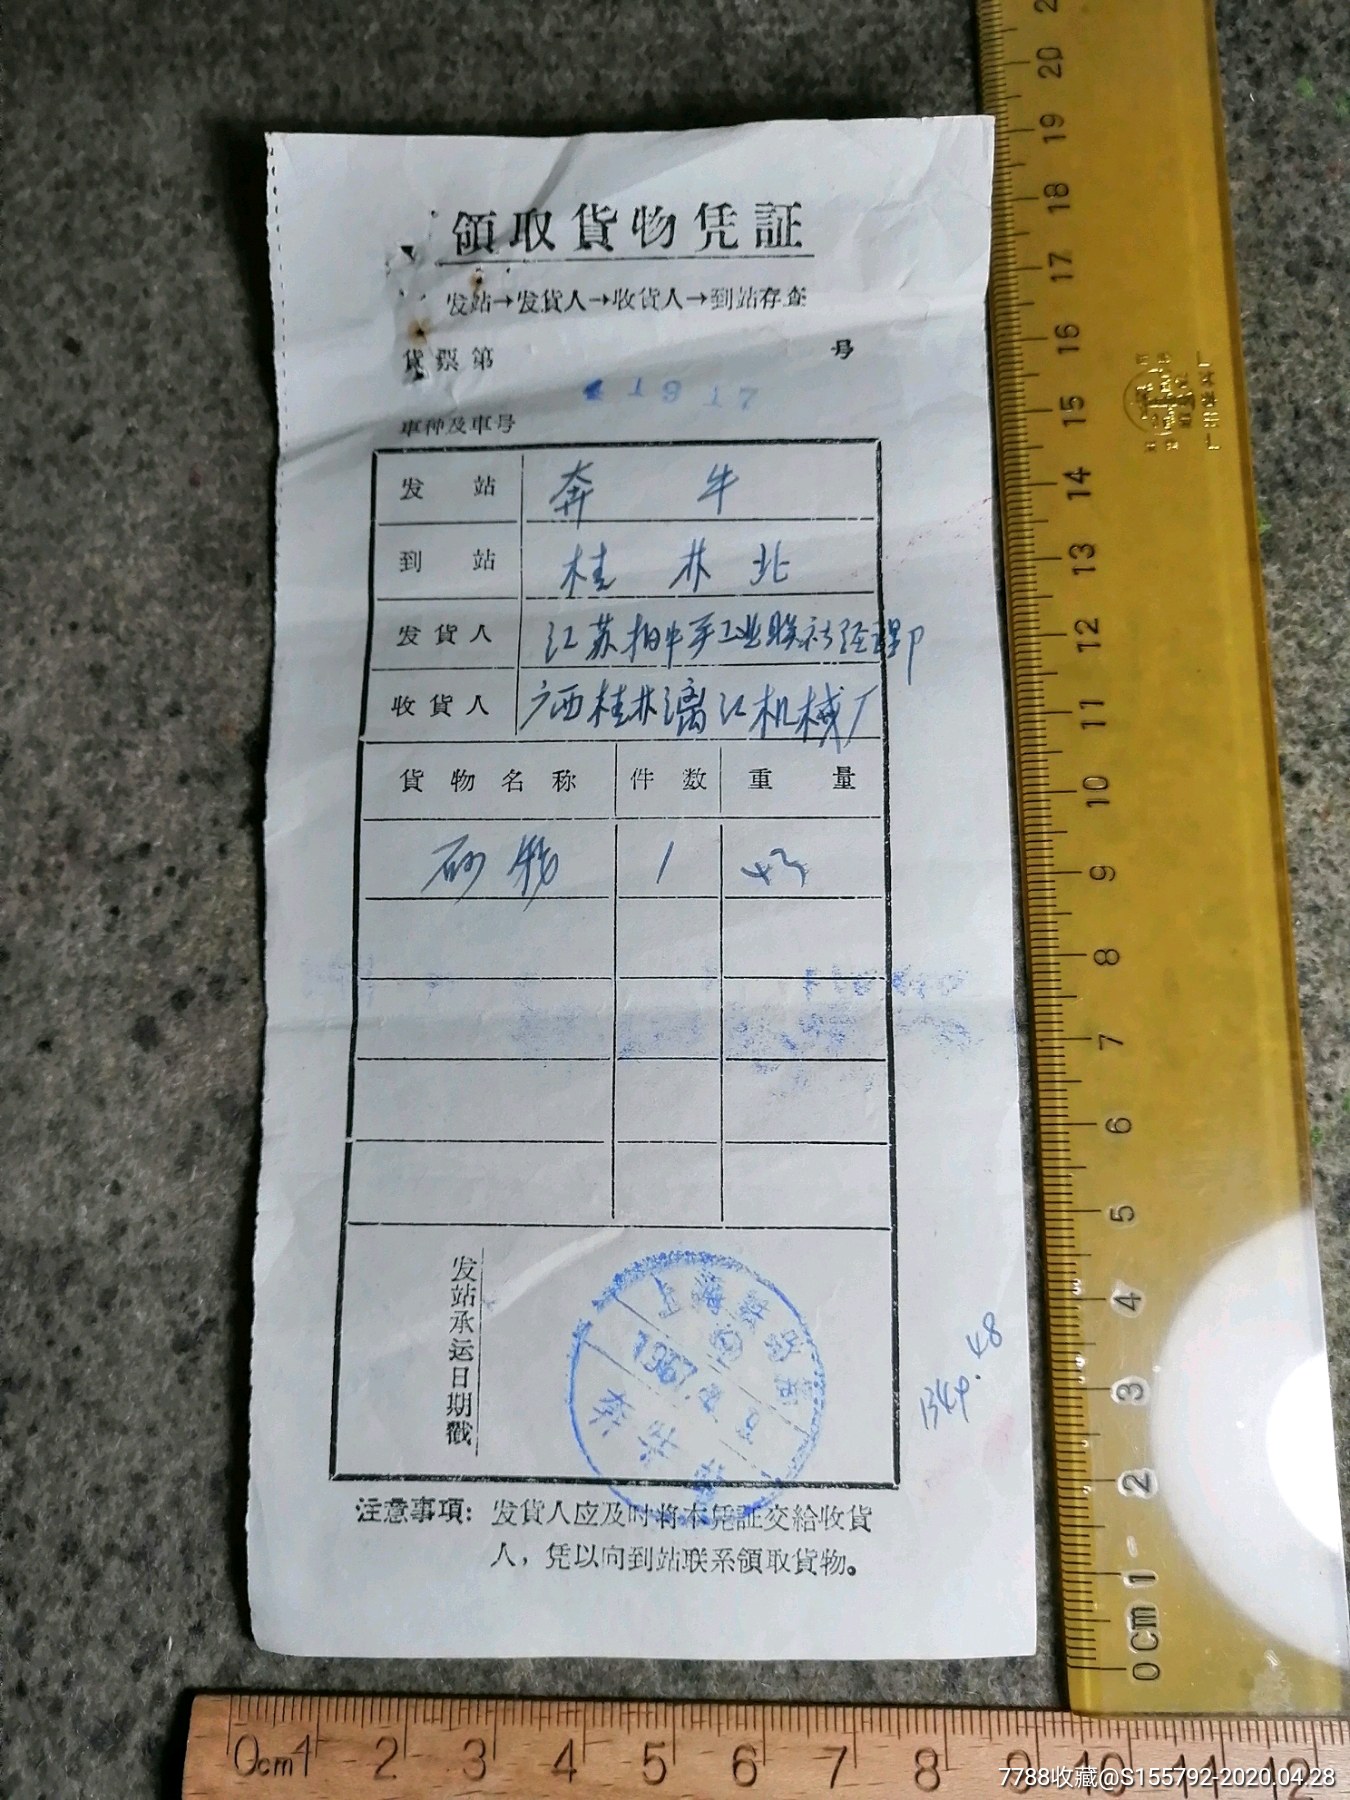 領取貨物凭証
发站→发貨人→收貨人→到站存查
貨票第 号
車种及車号
发站 奔牛
到站 桂林北
发貨人
收貨人 广西桂林漓江机械厂
貨物名称 件数 重量
砂 1
发站承运日期戳
上海铁路局
1967
奔牛
注意事項：发貨人应及时将本凭証交給收貨
人，凭以向到站联系領取貨物。
20
19
18
17
16
15
14
13
12
11
10
9
8
7
6
5
4
3
2
1
0cm
0cm 1 2 3 4 5 6 7 8 9 10 11 12
7788收藏@S155792-2020.04.28